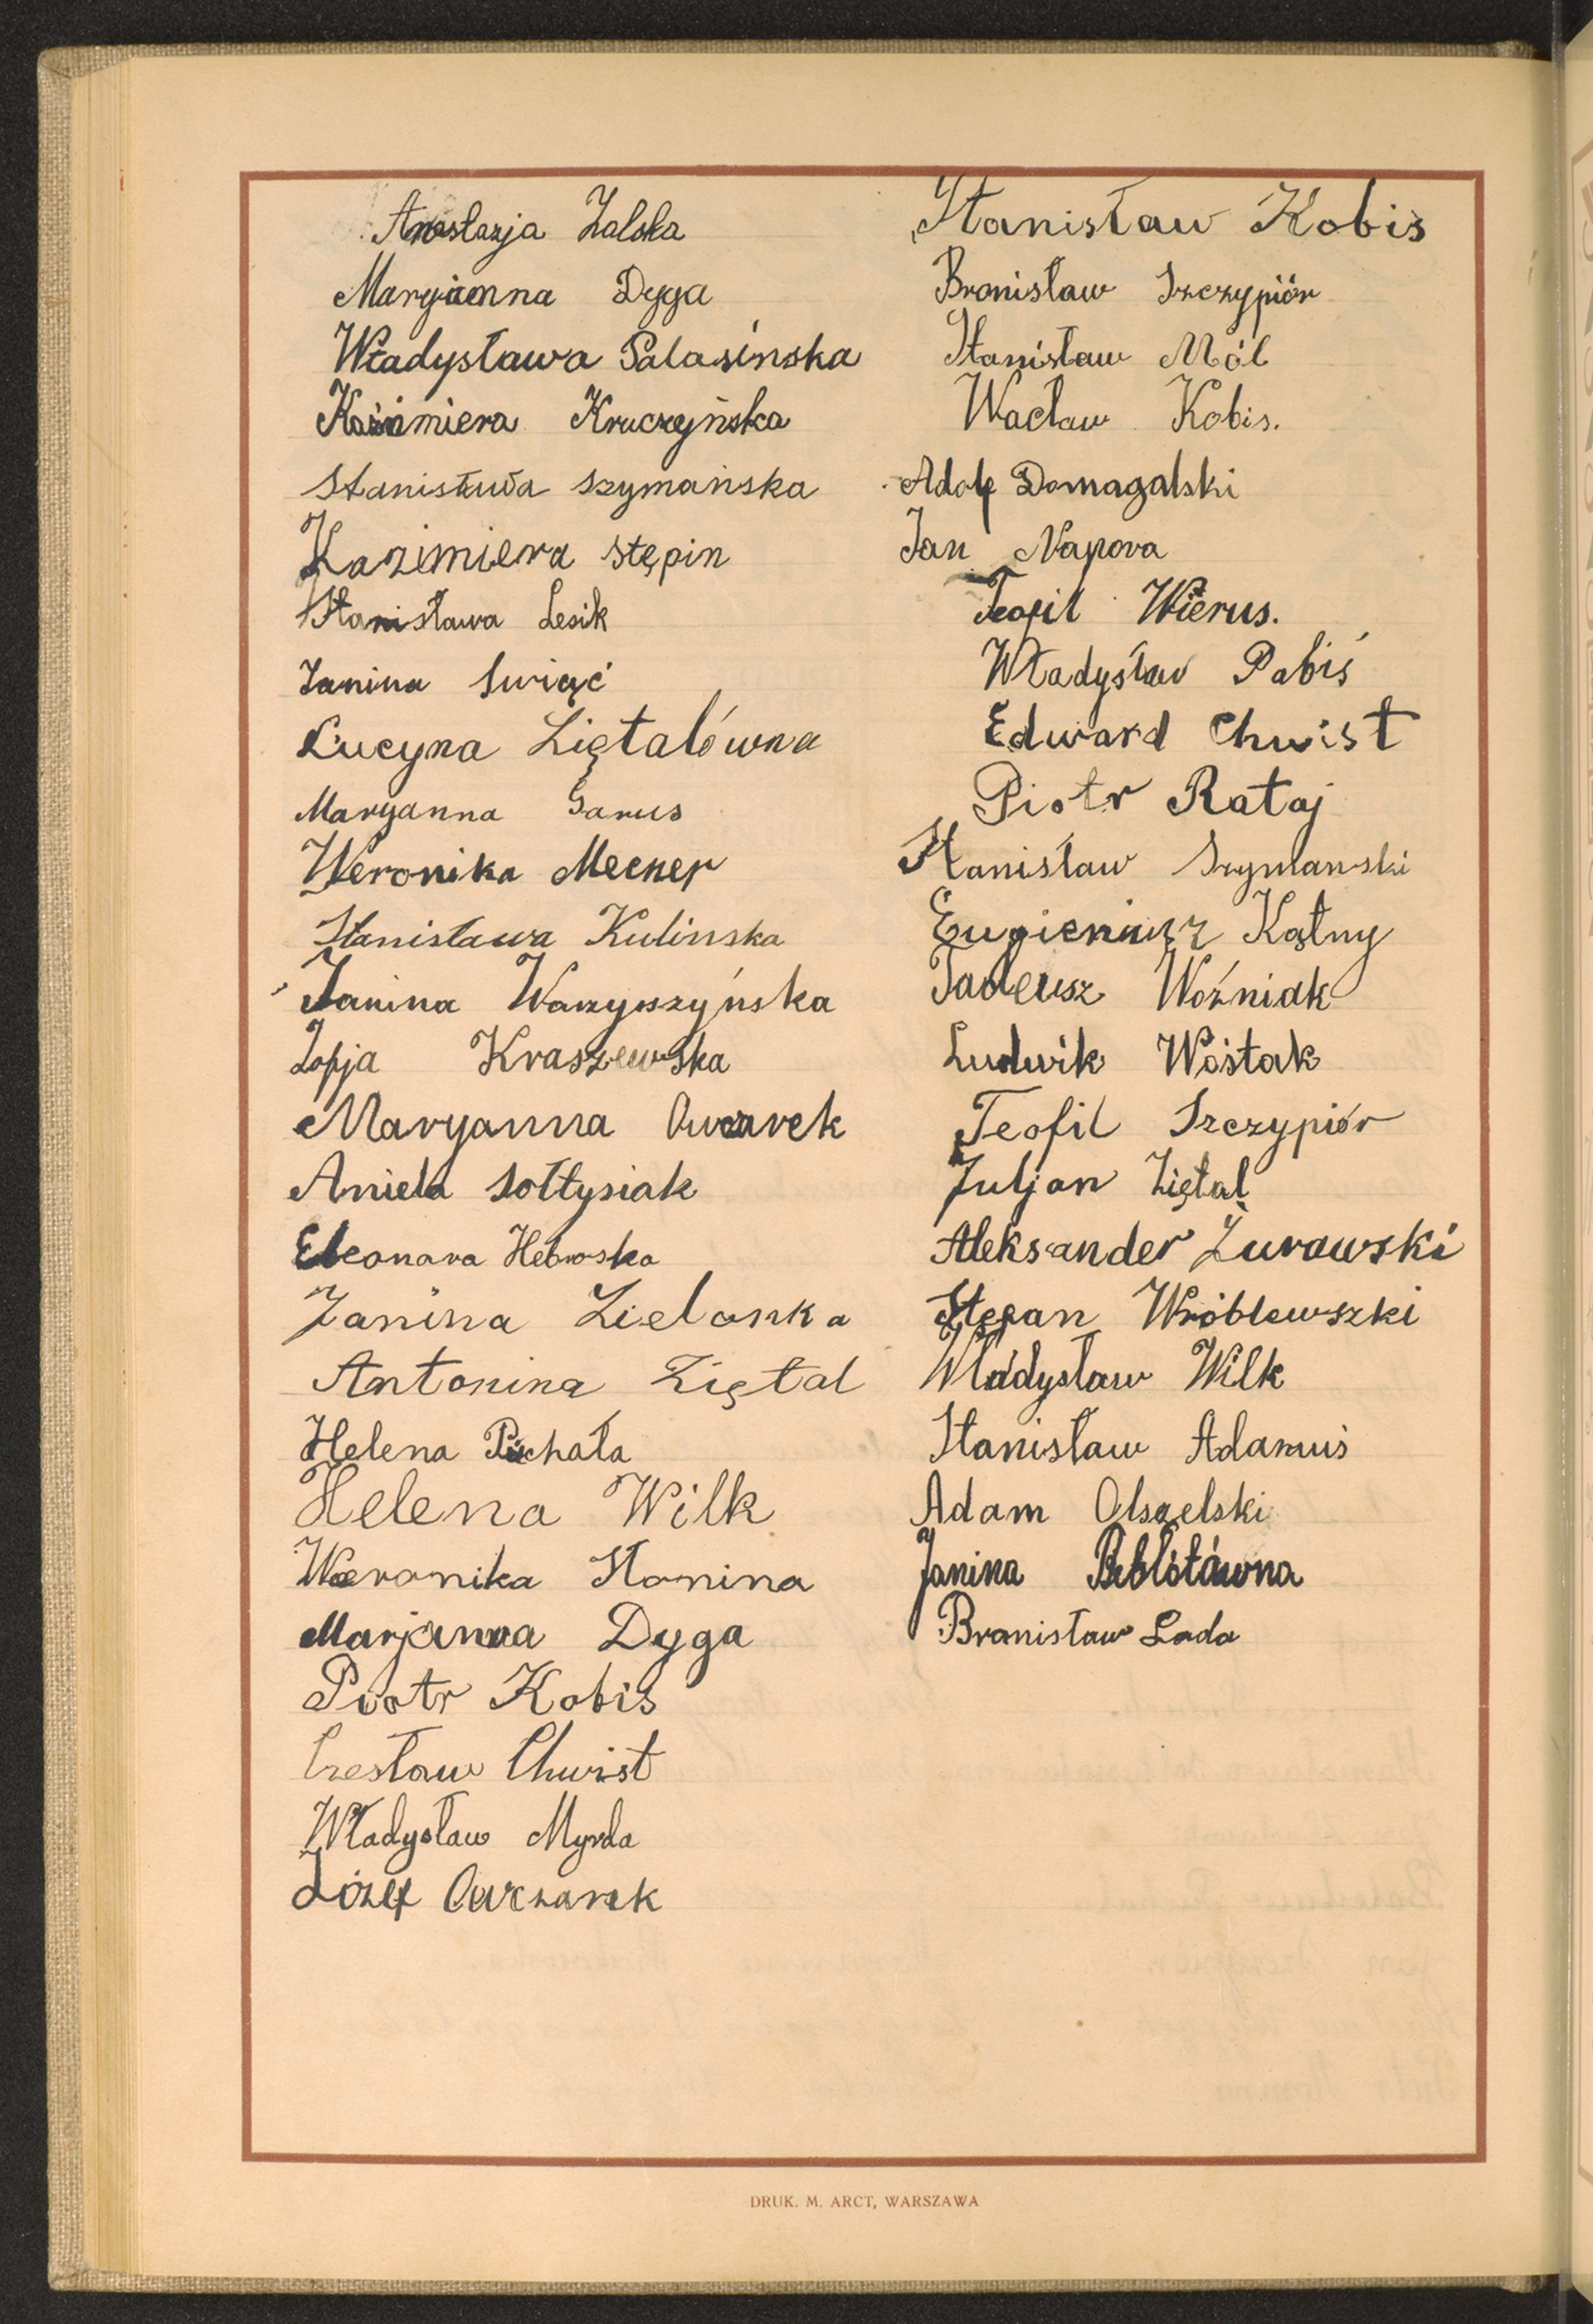 Anastazja Zalska
Maryianna Dyga
Władysława Palasińska
Kazimiera Kruczyńska
Stanisława Szymańska
Kazimiera Stępin
Stanisława Lesik
Janina Swiąć
Lucyna Ziętalówna
Maryanna Garus
Weronika Mecner
Stanisława Kulinska
Janina Wawzyszyńska
Zofja Kraszewska
Maryanna Owczarek
Aniela Sołtysiak
Eleonara Hebrowska
Janina Zielonka
Antonina Ziętal
Helena Puchała
Helena Wilk
Weronika Słomina
Marjanna Dyga
Piotr Kobis
Czesław Chwist
Władysław Myrda
Józef Owczarek
Stanisław Kobis
Bronisław Szczypiór
Stanisław Mól
Wacław Kobis.
Adolf Domagalski
Jan Napora
Teofil Wierus.
Władysław Pabiś
Edward Chwist
Piotr Rataj
Stanisław Szymanski
Eugieniusz Kątny
Tadeusz Woźniak
Ludwik Wośtak
Teofil Szczypiór
Juljan Ziętal
Aleksander Żurawski
Stefan Wróblewszki
Władysław Wilk
Stanisław Adamus
Adam Olszelski
Janina
Bronisław Lada
DRUK. M. ARCT, WARSZAWA